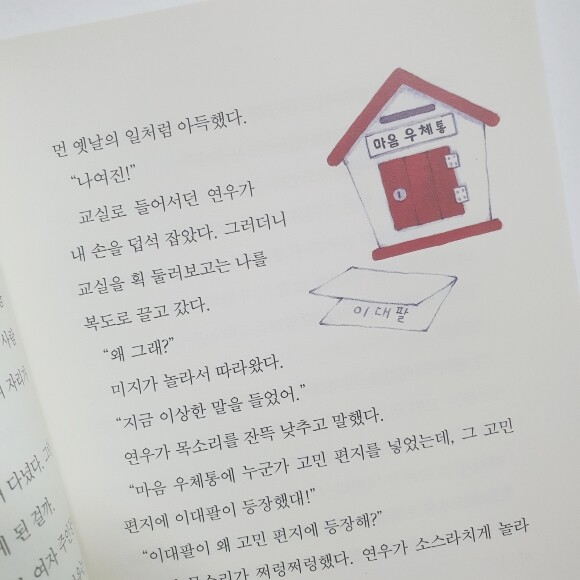 마음 우체통
이대팔
먼 옛날의 일처럼 아득했다.
“나여진!”
교실로 들어서던 연우가
내 손을 덥석 잡았다. 그러더니
교실을 획 둘러보고는 나를
복도로 끌고 갔다.
“왜 그래?”
미지가 놀라서 따라왔다.
“지금 이상한 말을 들었어.”
연우가 목소리를 잔뜩 낮추고 말했다.
“마음 우체통에 누군가 고민 편지를 넣었는데, 그 고민
편지에 이대팔이 등장했대!”
“이대팔이 왜 고민 편지에 등장해?”
목소리가 쩌렁쩌렁했다. 연우가 소스라치게 놀라
사람
자리가
다녔다.
된 걸까.
여자 주인